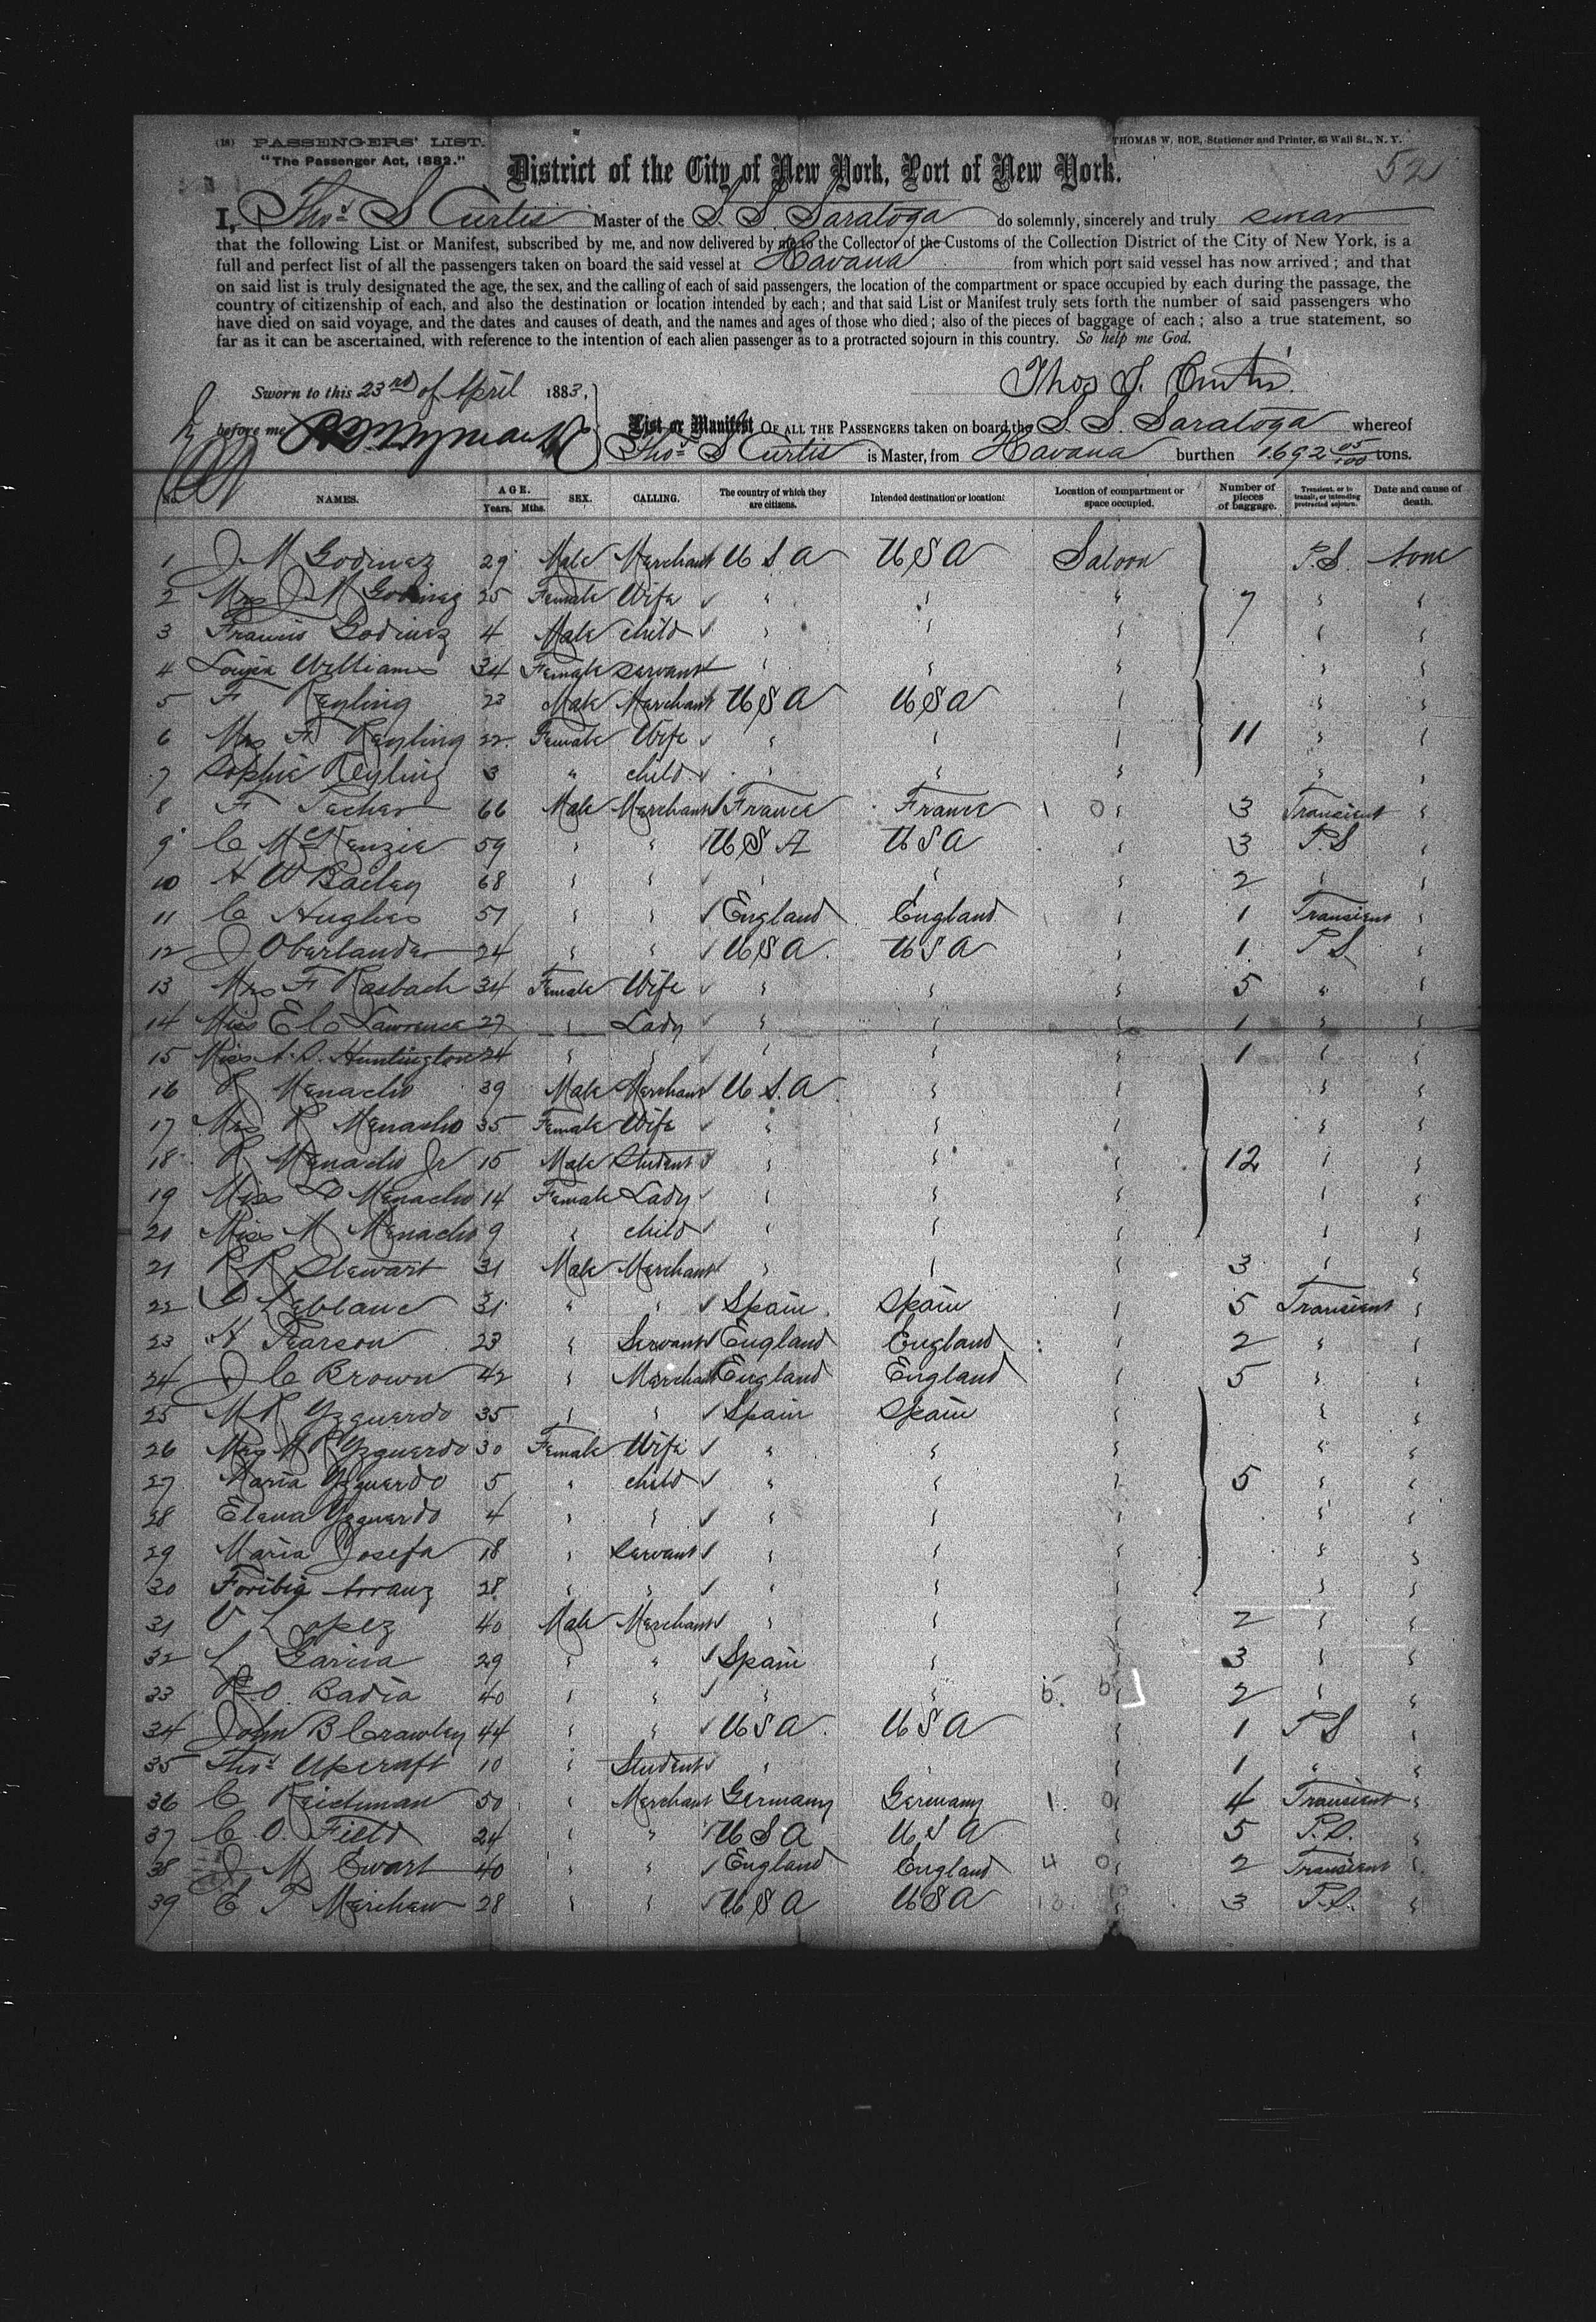 (18) PASSENGERS' LIST.
"The Passenger Act, 1882."
THOMAS W. BOE, Stationer and Printer, 63 Wall St., N. Y.
52
District of the City of New York, Port of New York.
I, Thos S Curtis Master of the S. S. Saratoga do solemnly, sincerely and truly swear
that the following List or Manifest, subscribed by me, and now delivered by me to the Collector of the Customs of the Collection District of the City of New York, is a
full and perfect list of all the passengers taken on board the said vessel at Havana from which port said vessel has now arrived; and that
on said list is truly designated the age, the sex, and the calling of each of said passengers, the location of the compartment or space occupied by each during the passage, the
country of citizenship of each, and also the destination or location intended by each; and that said List or Manifest truly sets forth the number of said passengers who
have died on said voyage, and the dates and causes of death, and the names and ages of those who died; also of the pieces of baggage of each; also a true statement, so
far as it can be ascertained, with reference to the intention of each alien passenger as to a protracted sojourn in this country. So help me God.
Thos S. Curtis
Sworn to this 23rd of April 1883,
before me
List or Manifest OF ALL THE PASSENGERS taken on board the S. S. Saratoga whereof
Thos S Curtis is Master, from Havana burthen 1692 05/100 tons.
No. NAMES. AGE. Years. Mths. SEX. CALLING. The country of which they are citizens. Intended destination or location. Location of compartment or space occupied. Number of pieces of baggage. Transient, or in transit, or intending protracted sojourn. Date and cause of death.
1 J M Godinez 29 Male Merchant U S A U S A Saloon P.S. None
2 Mrs J M Godinez 25 Female Wife " " " 7 " "
3 Francis Godinez 4 Male child " " " " "
4 Louisa Williams 34 Female servant " " " " "
5 F Reyling 23 Male Merchant U S A U S A " " "
6 Mrs F Reyling 22 Female Wife " " " 11 " "
7 Sophie Reyling 3 " child " " " " "
8 F 66 Male Merchant France France " 3 Transient "
9 C McKenzie 59 " " U S A U S A " 3 P.S "
10 A W Bailey 68 " " " " " 2 " "
11 C Hughes 51 " " England England " 1 Transient "
12 J Oberlander 24 " " U S A U S A " 1 P S "
13 Mrs F Rasbach 34 Female Wife " " " 5 " "
14 Miss E C Lawrence 27 " Lady " " " 1 " "
15 Miss A. D. Huntington 24 " " " " " 1 " "
16 R Menacho 39 Male Merchant U S A " " " "
17 Mrs R Menacho 35 Female Wife " " " " "
18 R Menacho Jr 15 Male Student " " " 12 " "
19 Miss L Menacho 14 Female Lady " " " " "
20 Miss M Menacho 9 " child " " " " "
21 R R Stewart 31 Male Merchant " " " 3 " "
22 Leblanc 31 " " Spain Spain " 5 Transient "
23 H Pearson 23 " Servant England England " 2 " "
24 J C Brown 42 " Merchant England England " 5 " "
25 M R Yzquerdo 35 " " Spain Spain " " "
26 Mrs M R Yzquerdo 30 Female Wife " " " " "
27 Maria Yzquerdo 5 " child " " " 5 " "
28 Elena Yzquerdo 4 " " " " " " "
29 Maria Josefa 18 " Servant " " " " "
30 Toribia Arranz 28 " " " " " " "
31 V Lopez 40 Male Merchant " " " 2 " "
32 L Garcia 29 " " Spain " " 3 " "
33 R O. Badia 40 " " " " " 2 " "
34 John B Crawley 44 " " U S A U S A " 1 P S "
35 Thos Upcraft 10 " Student " " " 1 " "
36 C Reichman 50 " Merchant Germany Germany " 4 Transient "
37 C O. Field 24 " " U S A U S A " 5 P.S. "
38 J M Ewart 40 " " England England " 2 Transient "
39 E P Merchew 28 " " U S A U S A " 3 P.S. "